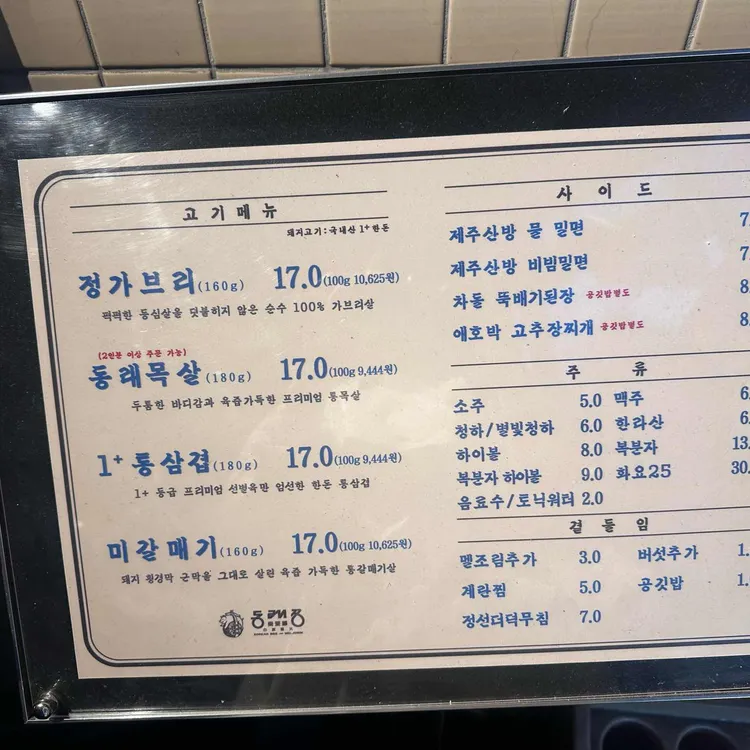 고기메뉴
돼지고기:국내산 1+한돈
정가브리(160g) 17.0(100g 10,625원)
퍽퍽한 등심살을 덧붙히지 않은 순수 100% 가브리살
(2인분 이상 주문 가능)
동래목살(180g) 17.0(100g 9,444원)
두툼한 바디감과 육즙가득한 프리미엄 통목살
1+통삼겹(180g) 17.0(100g 9,444원)
1+ 등급 프리미엄 선별육만 엄선한 한돈 통삼겹
미갈매기(160g) 17.0(100g 10,625원)
돼지 횡경막 근막을 그대로 살린 육즙 가득한 통갈매기살
사이드
제주산방 물 밀면 7.
제주산방 비빔밀면 7.
차돌 뚝배기된장 공깃밥별도 8
애호박 고추장찌개 공깃밥별도 8.
주류
소주 5.0 맥주 6.
청하/별빛청하 6.0 한라산 6.
하이볼 8.0 복분자 13.
복분자 하이볼 9.0 화요25 30.
음료수/토닉워터 2.0
곁들임
멜조림추가 3.0 버섯추가 1.
계란찜 5.0 공깃밥 1.
정선더덕무침 7.0